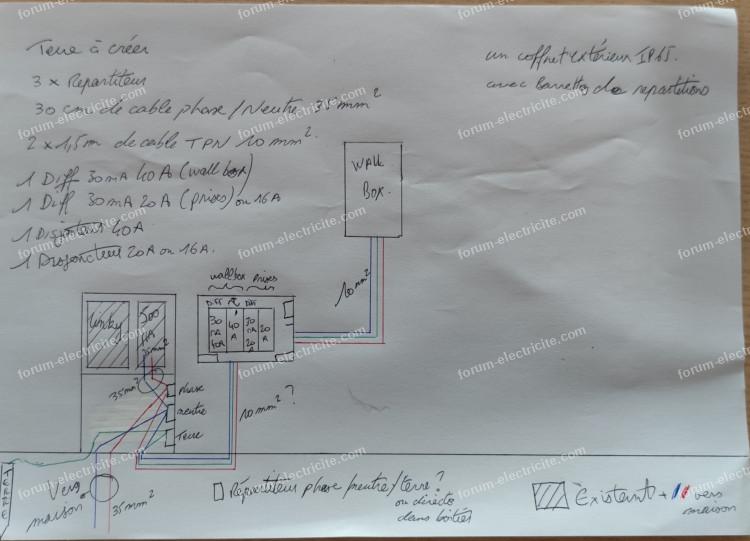 Terre à créer
3 x Repartiteur
30 cm de cable phase/Neutre 35mm²
2 x 1,5m de cable TPN 10 mm².
1 Diff 30mA 40A (wall box)
1 Diff 30mA 20A (prises) ou 16A
1 Disjoncteur 40A
1 Disjoncteur 20A ou 16A.
un coffret extérieur IP65.
avec Barrettes de repartitions
WALL
BOX.
wallbox prises
Diff
Diff
30
mA
40A
40
A
30
mA
20A
20
A
Linky
500
mA
35mm²
35mm²
phase
neutre
Terre
10mm²
10mm²?
TERRE
Vers
maison
35mm²
Répartiteur phase/neutre/terre?
ou directe
dans boîtier
Existant +
vers
maison
forum-electricite.com